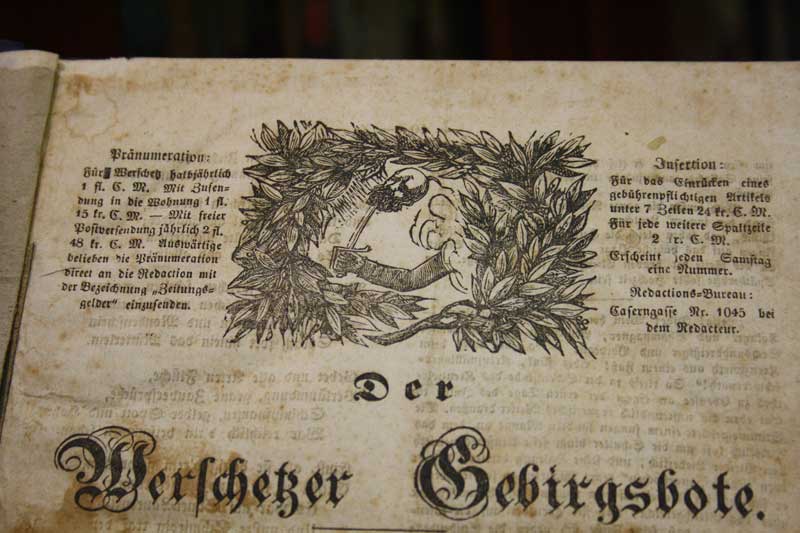 Pränumeration:
Für Werschetz halbjährlich
1 fl. C. M. Mit Zusen-
dung in die Wohnung 1 fl.
15 kr. C. M. — Mit freier
Postversendung jährlich 2 fl.
48 kr. C. M. Auswärtige
belieben die Pränumeration
direct an die Redaction mit
der Bezeichnung „Zeitungs-
gelder“ einzusenden.
Insertion:
Für das Einrücken eines
gebührenpflichtigen Artikels
unter 7 Zeilen 24 kr. C. M.
Für jede weitere Spaltzeile
2 kr. C. M.
Erscheint jeden Samstag
eine Nummer.
Redactions-Bureau:
Caserngasse Nr. 1045 bei
dem Redacteur.
Der
Werschetzer Gebirgsbote.